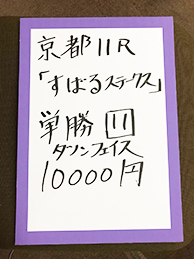 京都11R
「すばるステークス」
単勝 11
タソンフェイス
10000円